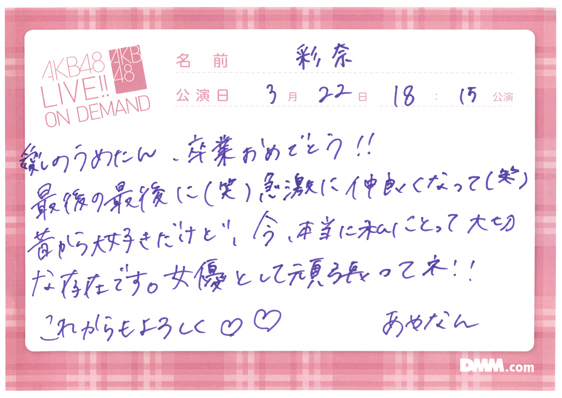 AKB48
LIVE!!
ON DEMAND
AKB
48
名前 彩奈
公演日 3月22日 18:15公演
愛しのうめたん、卒業おめでとう!!
最後の最後に(笑)急激に仲良くなって(笑)
昔から大好きだけど、今、本当に私にとって大切
な存在です。女優として頑張ってネ!!
これからもよろしく♡♡ あやなん
DMM.com